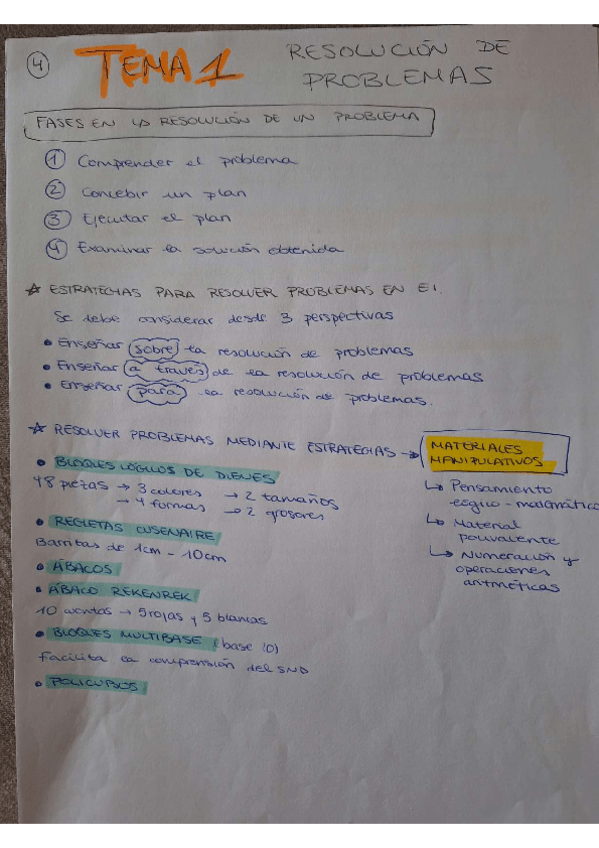 4
TEMA 1
RESOLUCIÓN DE
PROBLEMAS
FASES EN LA RESOLUCIÓN DE UN PROBLEMA
1 Comprender el problema
2 Concebir un plan
3 Ejecutar el plan
4 Examinar la solución obtenida
☆ ESTRATEGIAS PARA RESOLVER PROBLEMAS EN EI.
Se debe considerar desde 3 perspectivas
• Enseñar sobre la resolución de problemas
• Enseñar a través de la resolución de problemas
• Enseñar para la resolución de problemas.
☆ RESOLVER PROBLEMAS MEDIANTE ESTRATEGIAS →
MATERIALES
MANIPULATIVOS
↳ Pensamiento
lógico-matemático
↳ Material
polivalente
↳ Numeración y
operaciones
aritméticas
• BLOQUES LÓGICOS DE DIENES
48 piezas → 3 colores → 2 tamaños
→ 4 formas → 2 grosores
• REGLETAS CUSENAIRE
Barritas de 1cm - 10cm
• ÁBACOS
• ÁBACO REKENREK
10 cuentas → 5 rojas y 5 blancas
• BLOQUES MULTIBASE (base 10)
Facilita la comprensión del SND
• POLICUBOS